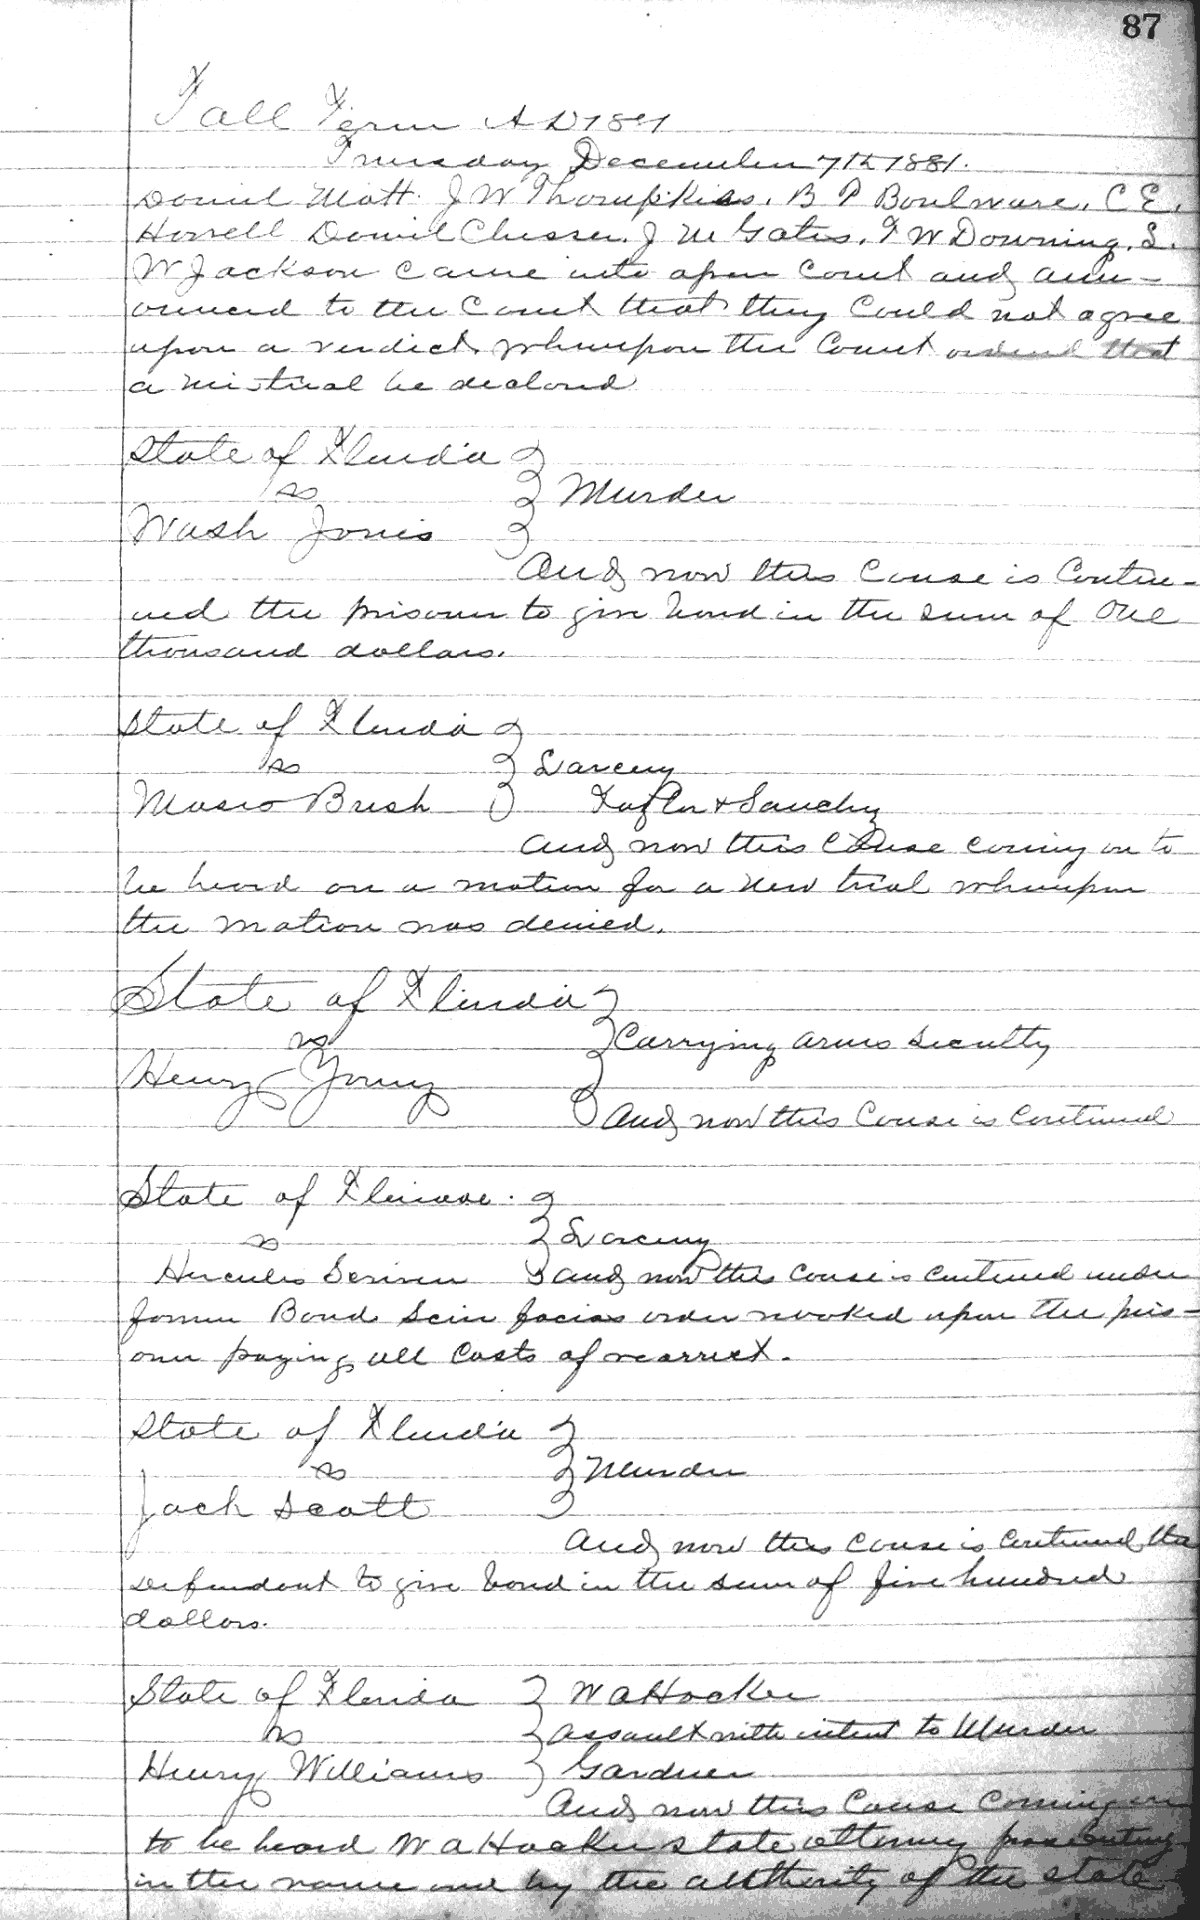 87
Fall Term A D 1881
Thursday December 7th 1881.
Daniel Mott. J W Thompkins. B P Boulware. C E.
Horrell Daniel Chesser. J M Gates. F W Downing. S.
W Jackson came into open Court and ann-
ounced to the Court that they could not agree
upon a verdict, whereupon the Court ordered that
a mistrial be declared
State of Florida
vs
Murder
Wash Jones
And now this Cause is Contin-
ued the prisoner to give bond in the sum of One
thousand dollars.
State of Florida
vs
Larceny
Bush
And now this Cause coming on to
be heard on a motion for a new trial whereupon
the motion was denied.
State of Florida
vs
Carrying arms secretly
Henry Young
And now this Cause is Continued
State of Florida.
vs
Larceny
Hercules Scriven and now this cause is continued under
former Bond. Scire facias order revoked upon the pris-
oner paying all Costs of rearrest.
State of Florida
vs
Murder
Jack Scott
And now this cause is continued the
defendant to give bond in the sum of five hundred
dollars.
State of Florida W A Hocker
vs
assault with intent to Murder
Henry Williams Gardner
And now this Cause coming on
to be heard W A Hocker state attorney prosecuting
in the name and by the authority of the state